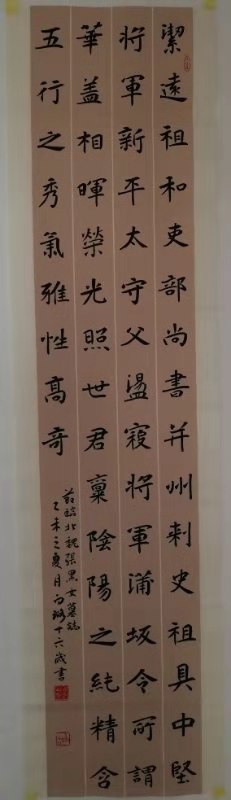 潔遠祖和吏部尚書并州刺史祖具中堅
將軍新平太守父盪寇將軍蒲坂令所謂
華蓋相暉榮光照世君稟陰陽之純精含
五行之秀氣雅性高奇
節臨北魏張黑女墓誌
乙未之夏月 十六歲書